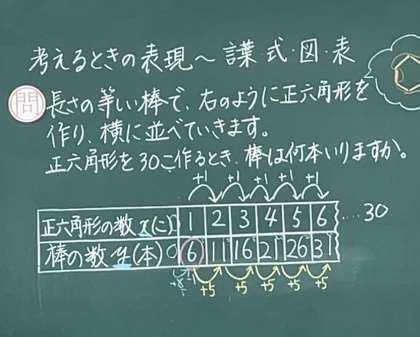 考えるときの表現~言葉・式・図・表
問 長さの等しい棒で、右のように正六角形を
作り、横に並べていきます。
正六角形を30こ作るとき、棒は何本いりますか。
+1 +1 +1 +1 +1
正六角形の数x(こ) 1 2 3 4 5 6 …30
棒の数y(本) 6 11 16 21 26 31
+5 +5 +5 +5 +5